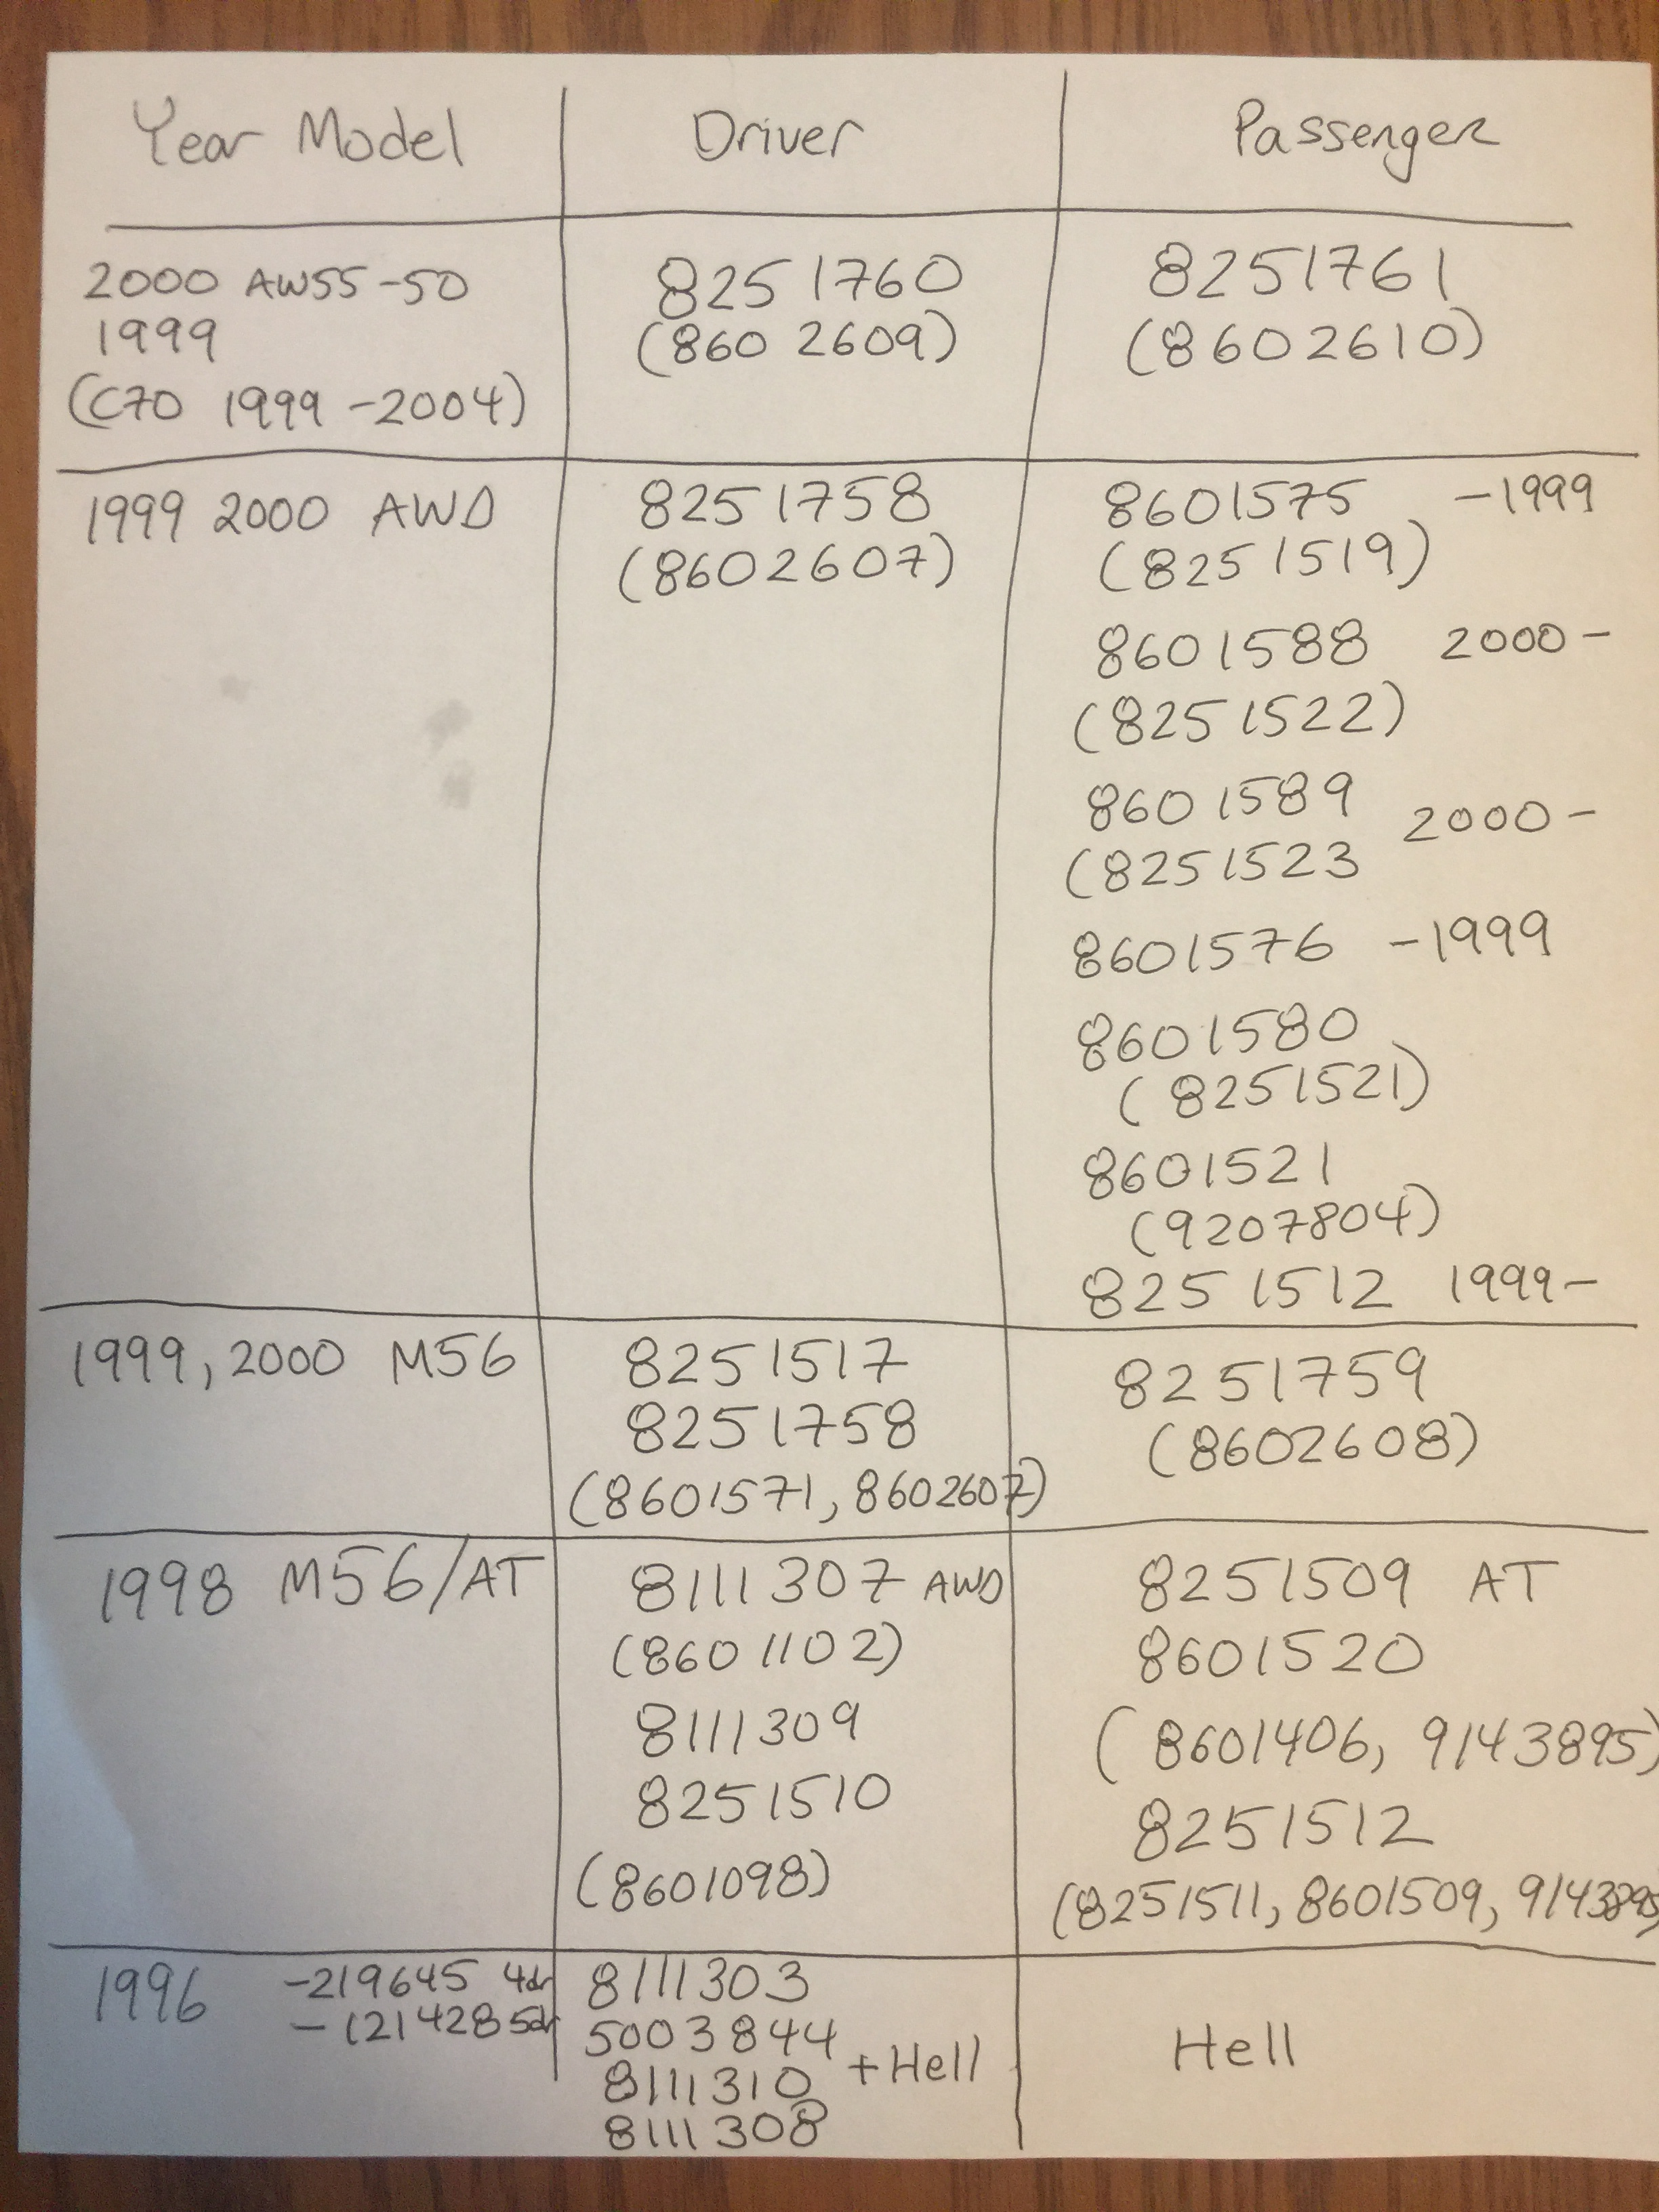 Year Model Driver Passenger
2000 AW55-50 8251760 8251761
1999 (8602609) (8602610)
(C70 1999-2004)
1999 2000 AWD 8251758 8601575 -1999
(8602607) (8251519)
8601588 2000-
(8251522)
8601589 2000-
(8251523
8601576 -1999
8601580
(8251521)
8601521
(9207804)
8251512 1999-
1999, 2000 M56 8251517 8251759
8251758 (8602608)
(8601571, 8602607)
1998 M56/AT 8111307 AWD 8251509 AT
(8601102) 8601520
8111309 (8601406, 9143895)
8251510 8251512
(8601098) (8251511, 8601509, 9143895
1996 -219645 4dr 8111303
-121428 5dr 5003844 +Hell Hell
8111310
8111308